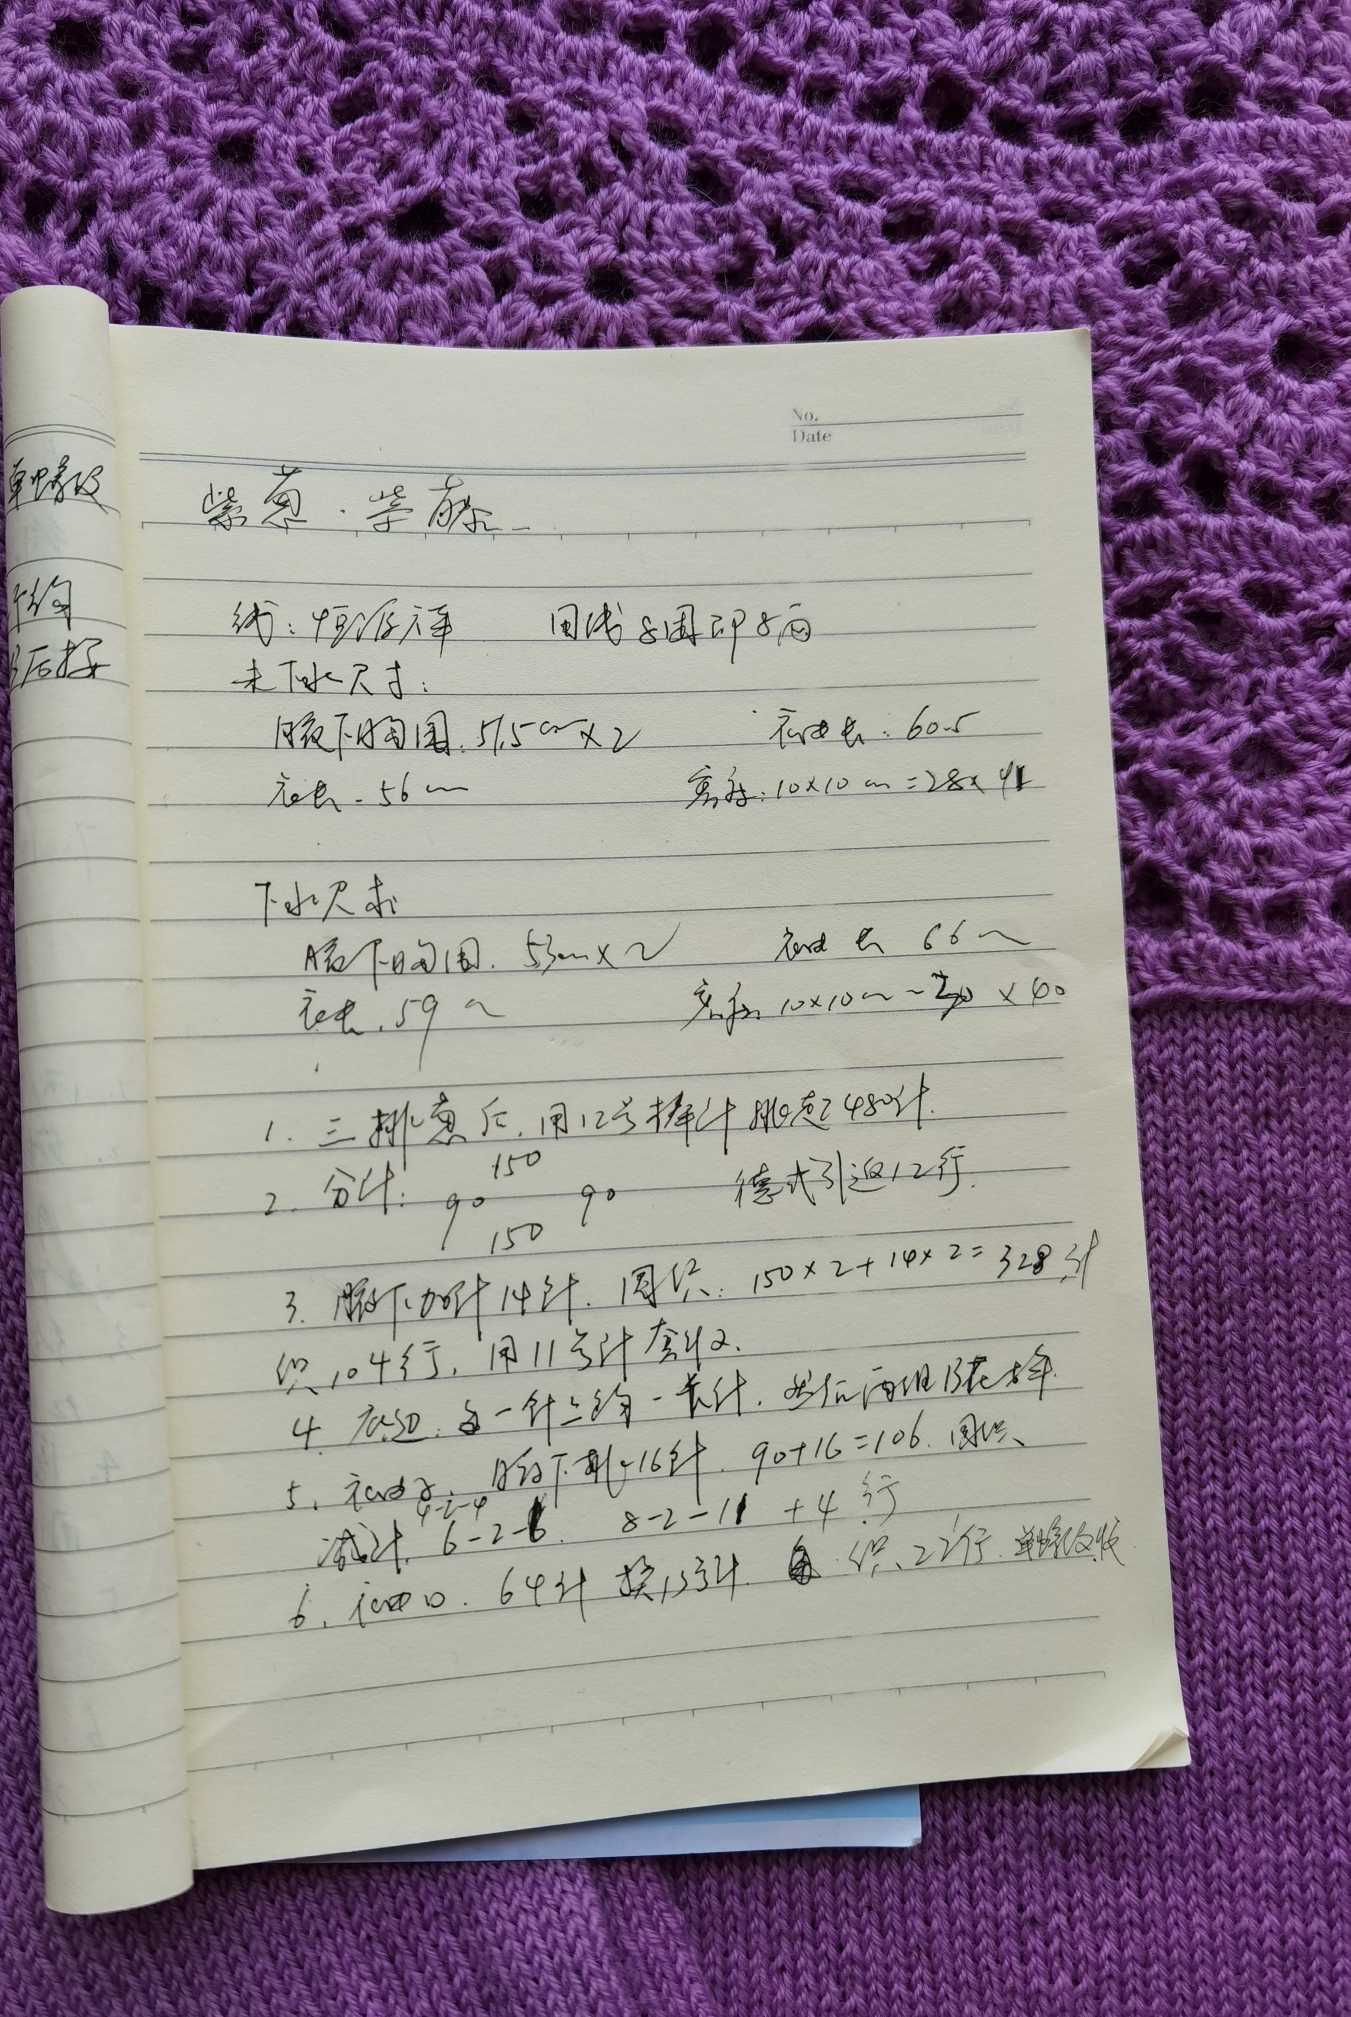 单螺纹
No.
Date
紫葱·紫藤
线:恒源祥 用线8团即8两
未下水尺寸:
腋下胸围:51.5cm×2 袖长:60.5
衣长-56cm 密度:10×10cm=28×41
下水尺寸
腋下胸围. 53cm×2 袖长 66cm
衣长.59cm 密度 10×10cm-30×40
1. 三排葱后.用12号棒针挑起480针.
2. 分针: 90 150 90 150 德式引返12行.
3. 腋下加针14针. 圈织: 150×2+14×2=328针
织104行,用11号针套收.
4. 底边:每一针上钩一长针.然后
5. 袖子. 腋下挑16针. 90+16=106. 圈织
4-2-4
减针. 6-2-6. 8-2-11 +4行
6. 袖口. 64针 换13号针. 织22行.单螺纹收.